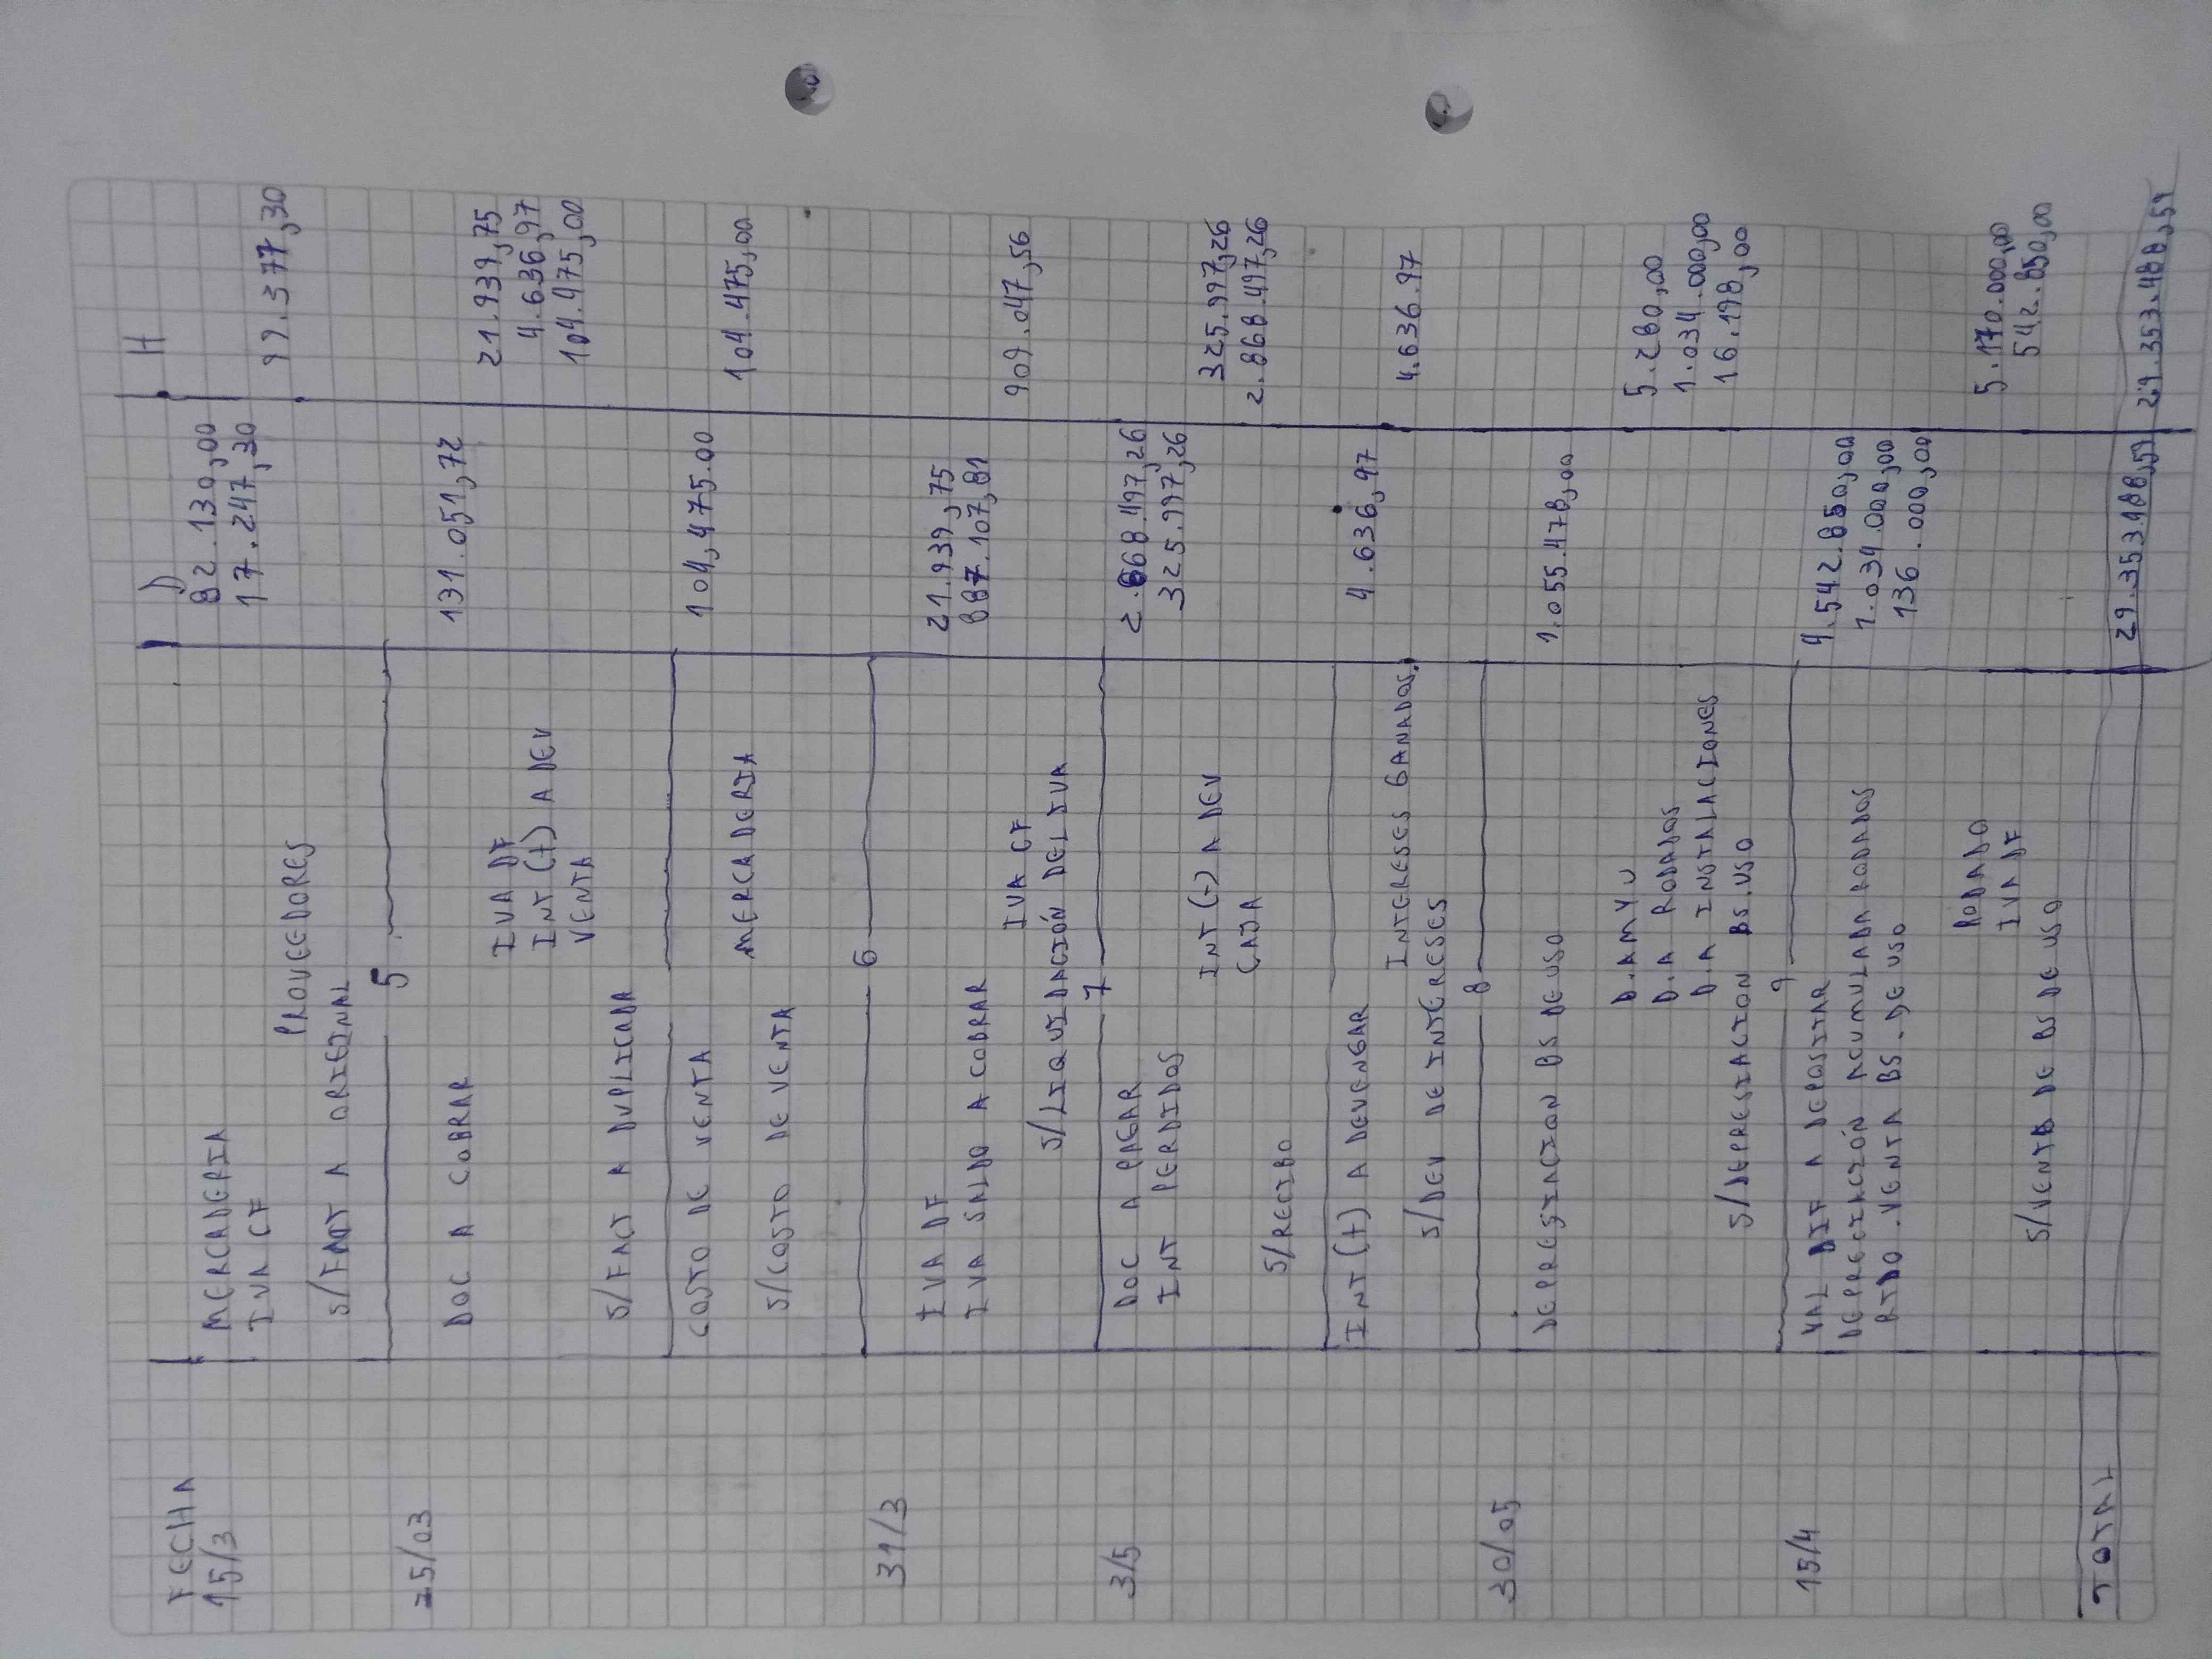 FECHA D H
15/3 MERCADERIA 82.130,00
IVA CF 17.247,30
PROVEEDORES 99.377,30
S/FACT A ORIGINAL
5
25/03 DOC A COBRAR 131.051,72
IVA DF 21.939,75
INT (+) A DEV 4.636,97
VENTA 104.475,00
S/FACT A DUPLICADA
COSTO DE VENTA 104,475.00
MERCADERIA 104.475,00
S/COSTO DE VENTA
6
31/3 IVA DF 21.939,75
IVA SALDO A COBRAR 887.107,81
IVA CF 909.047,56
S/LIQUIDACIÓN DEL IVA
7
3/5 DOC A PAGAR 2.868.497,26
INT PERDIDOS 325.997,26
INT (-) A DEV 325.997,26
CAJA 2.868.497,26
S/RECIBO
INT (+) A DEVENGAR 4.636,97
INTERESES GANADOS 4.636.97
S/DEV DE INTERESES
8
30/05 DEPRESIACION BS DE USO 1.055.478,00
D.A MY U 5.280,00
D.A RODADOS 1.034.000,00
D.A INSTALACIONES 16.198,00
S/DEPRESIACION BS.USO
9
15/4 VAL DIF A DEPOSITAR 4.542.850,00
DEPRECIACIÓN ACUMULADA RODADOS 1.034.000,00
RTDO.VENTA BS.DE USO 136.000,00
RODADO 5.170.000,00
IVA DF 542.850,00
S/VENTA DE BS DE USO
TOTAL 29.353.488,59 29.353.488,59